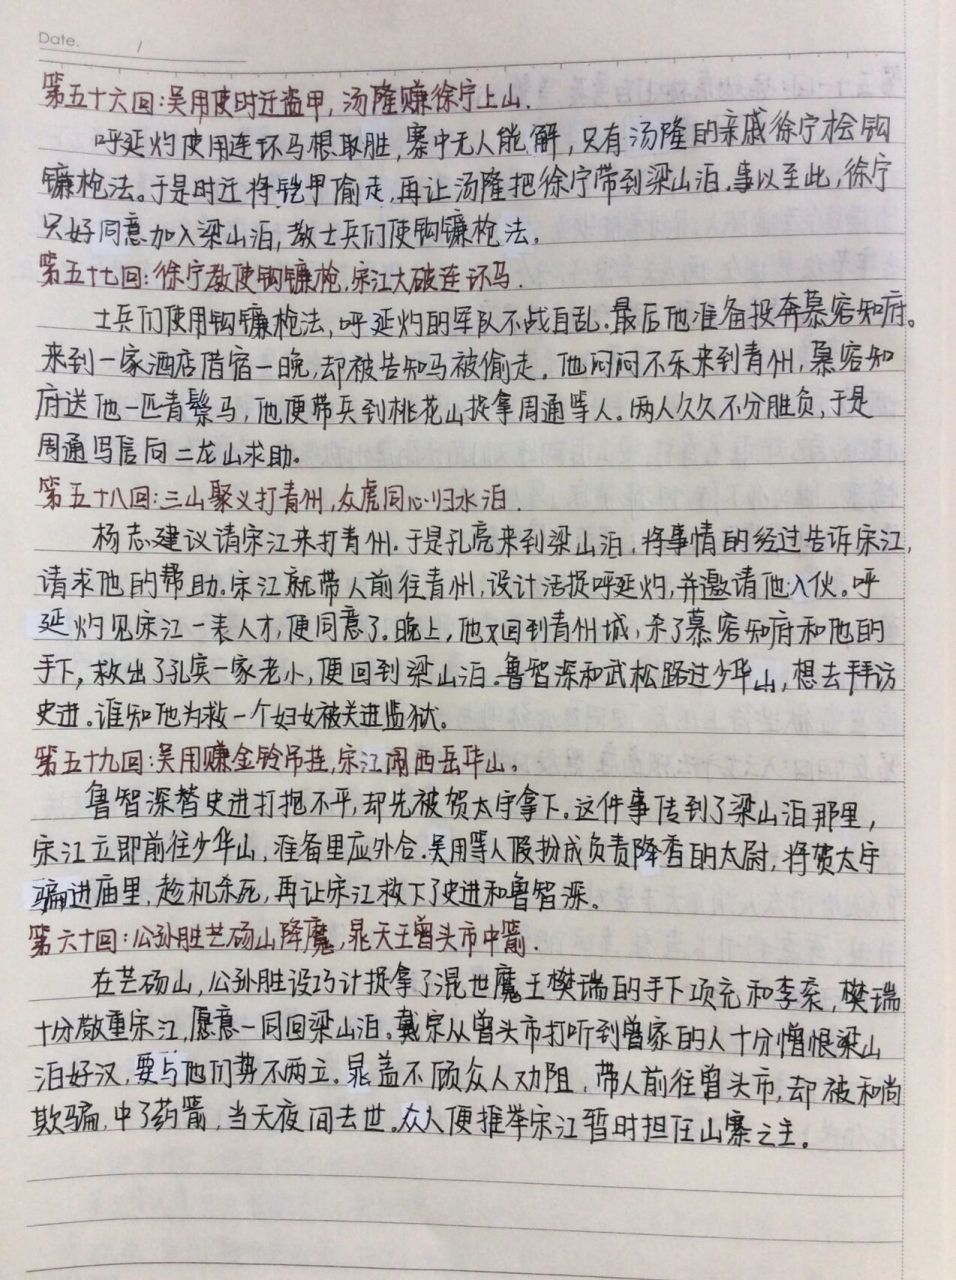 Date. /
第五十六回:吴用使时迁盗甲,汤隆赚徐宁上山.
呼延灼使用连环马很取胜,寨中无人能解,只有汤隆的亲戚徐宁会钩
镰枪法。于是时迁将铠甲偷走,再让汤隆把徐宁带到梁山泊.事以至此,徐宁
只好同意加入梁山泊,教士兵们使钩镰枪法,
第五十七回:徐宁教使钩镰枪,宋江大破连环马.
士兵们使用钩镰枪法,呼延灼的军队不战自乱.最后他准备投奔慕容知府。
来到一家酒店借宿一晚,却被告知马被偷走.他闷闷不乐来到青州,慕容知
府送他一匹青鬃马,他便带兵到桃花山捉拿周通等人.两人久久不分胜负,于是
周通写信向二龙山求助.
第五十八回:三山聚义打青州,众虎同心归水泊.
杨志建议请宋江来打青州.于是孔亮来到梁山泊,将事情的经过告诉宋江,
请求他的帮助.宋江就带人前往青州,设计活捉呼延灼,并邀请他入伙.呼
延灼见宋江一表人才,便同意了.晚上,他又回到青州城,杀了慕容知府和他的
手下,救出了孔宾一家老小,便回到梁山泊.鲁智深和武松路过少华山,想去拜访
史进.谁知他为救一个妇女被关进监狱.
第五十九回:吴用赚金铃吊挂,宋江闹西岳华山。
鲁智深替史进打抱不平,却先被贺太守拿下.这件事传到了梁山泊那里,
宋江立即前往少华山,准备里应外合.吴用等人假扮成负责降香的太尉,将贺太守
骗进庙里,趁机杀死,再让宋江救下史进和鲁智深。
第六十回:公孙胜芒砀山降魔,晁天王曾头市中箭.
在芒砀山,公孙胜设巧计捉拿了混世魔王樊瑞的手下项充和李衮,樊瑞
十分敬重宋江,愿意一同回梁山泊。戴宗从曾头市打听到曾家的人十分憎恨梁山
泊好汉,要与他们势不两立.晁盖不顾众人劝阻,带人前往曾头市,却被和尚
欺骗,中了药箭,当天夜间去世.众人便推举宋江暂时担任山寨之主.